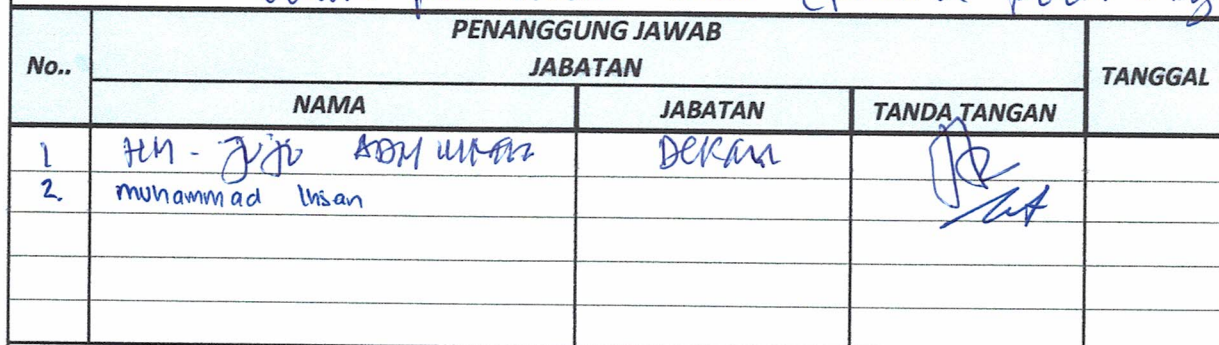 PENANGGUNG JAWAB
No.. JABATAN TANGGAL
NAMA JABATAN TANDA TANGAN
1 HM - Juju DEKAN
2. Muhammad Ihsan